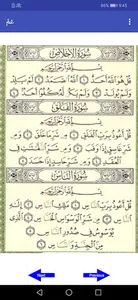 سُورَةُ الإِخْلَاصِ
بِسْمِ اللَّهِ الرَّحْمَٰنِ الرَّحِيمِ
قُلْ هُوَ اللَّهُ أَحَدٌ ۝ اللَّهُ الصَّمَدُ ۝ لَمْ يَلِدْ
وَلَمْ يُولَدْ ۝ وَلَمْ يَكُن لَّهُ كُفُوًا أَحَدٌ ۝
سُورَةُ الفَلَقِ
بِسْمِ اللَّهِ الرَّحْمَٰنِ الرَّحِيمِ
قُلْ أَعُوذُ بِرَبِّ الْفَلَقِ ۝ مِن شَرِّ مَا خَلَقَ ۝ وَمِن شَرِّ
غَاسِقٍ إِذَا وَقَبَ ۝ وَمِن شَرِّ النَّفَّاثَاتِ فِي الْعُقَدِ
۝ وَمِن شَرِّ حَاسِدٍ إِذَا حَسَدَ ۝
سُورَةُ النَّاسِ
بِسْمِ اللَّهِ الرَّحْمَٰنِ الرَّحِيمِ
قُلْ أَعُوذُ بِرَبِّ النَّاسِ ۝ مَلِكِ النَّاسِ ۝
إِلَٰهِ النَّاسِ ۝ مِن شَرِّ الْوَسْوَاسِ الْخَنَّاسِ ۝
الَّذِي يُوَسْوِسُ فِي صُدُورِ النَّاسِ ۝
مِنَ الْجِنَّةِ وَالنَّاسِ ۝
Next
Previous